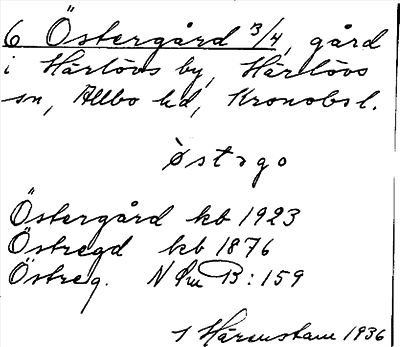 6 Östergård 3/4, gård
i Härlövs by, Härlövs
sn, Allbo hd, Kronobs l.
östgo
Östergård kb 1923
Östregd kb 1876
Östreg. NSm B: 159
I Härenstam 1936